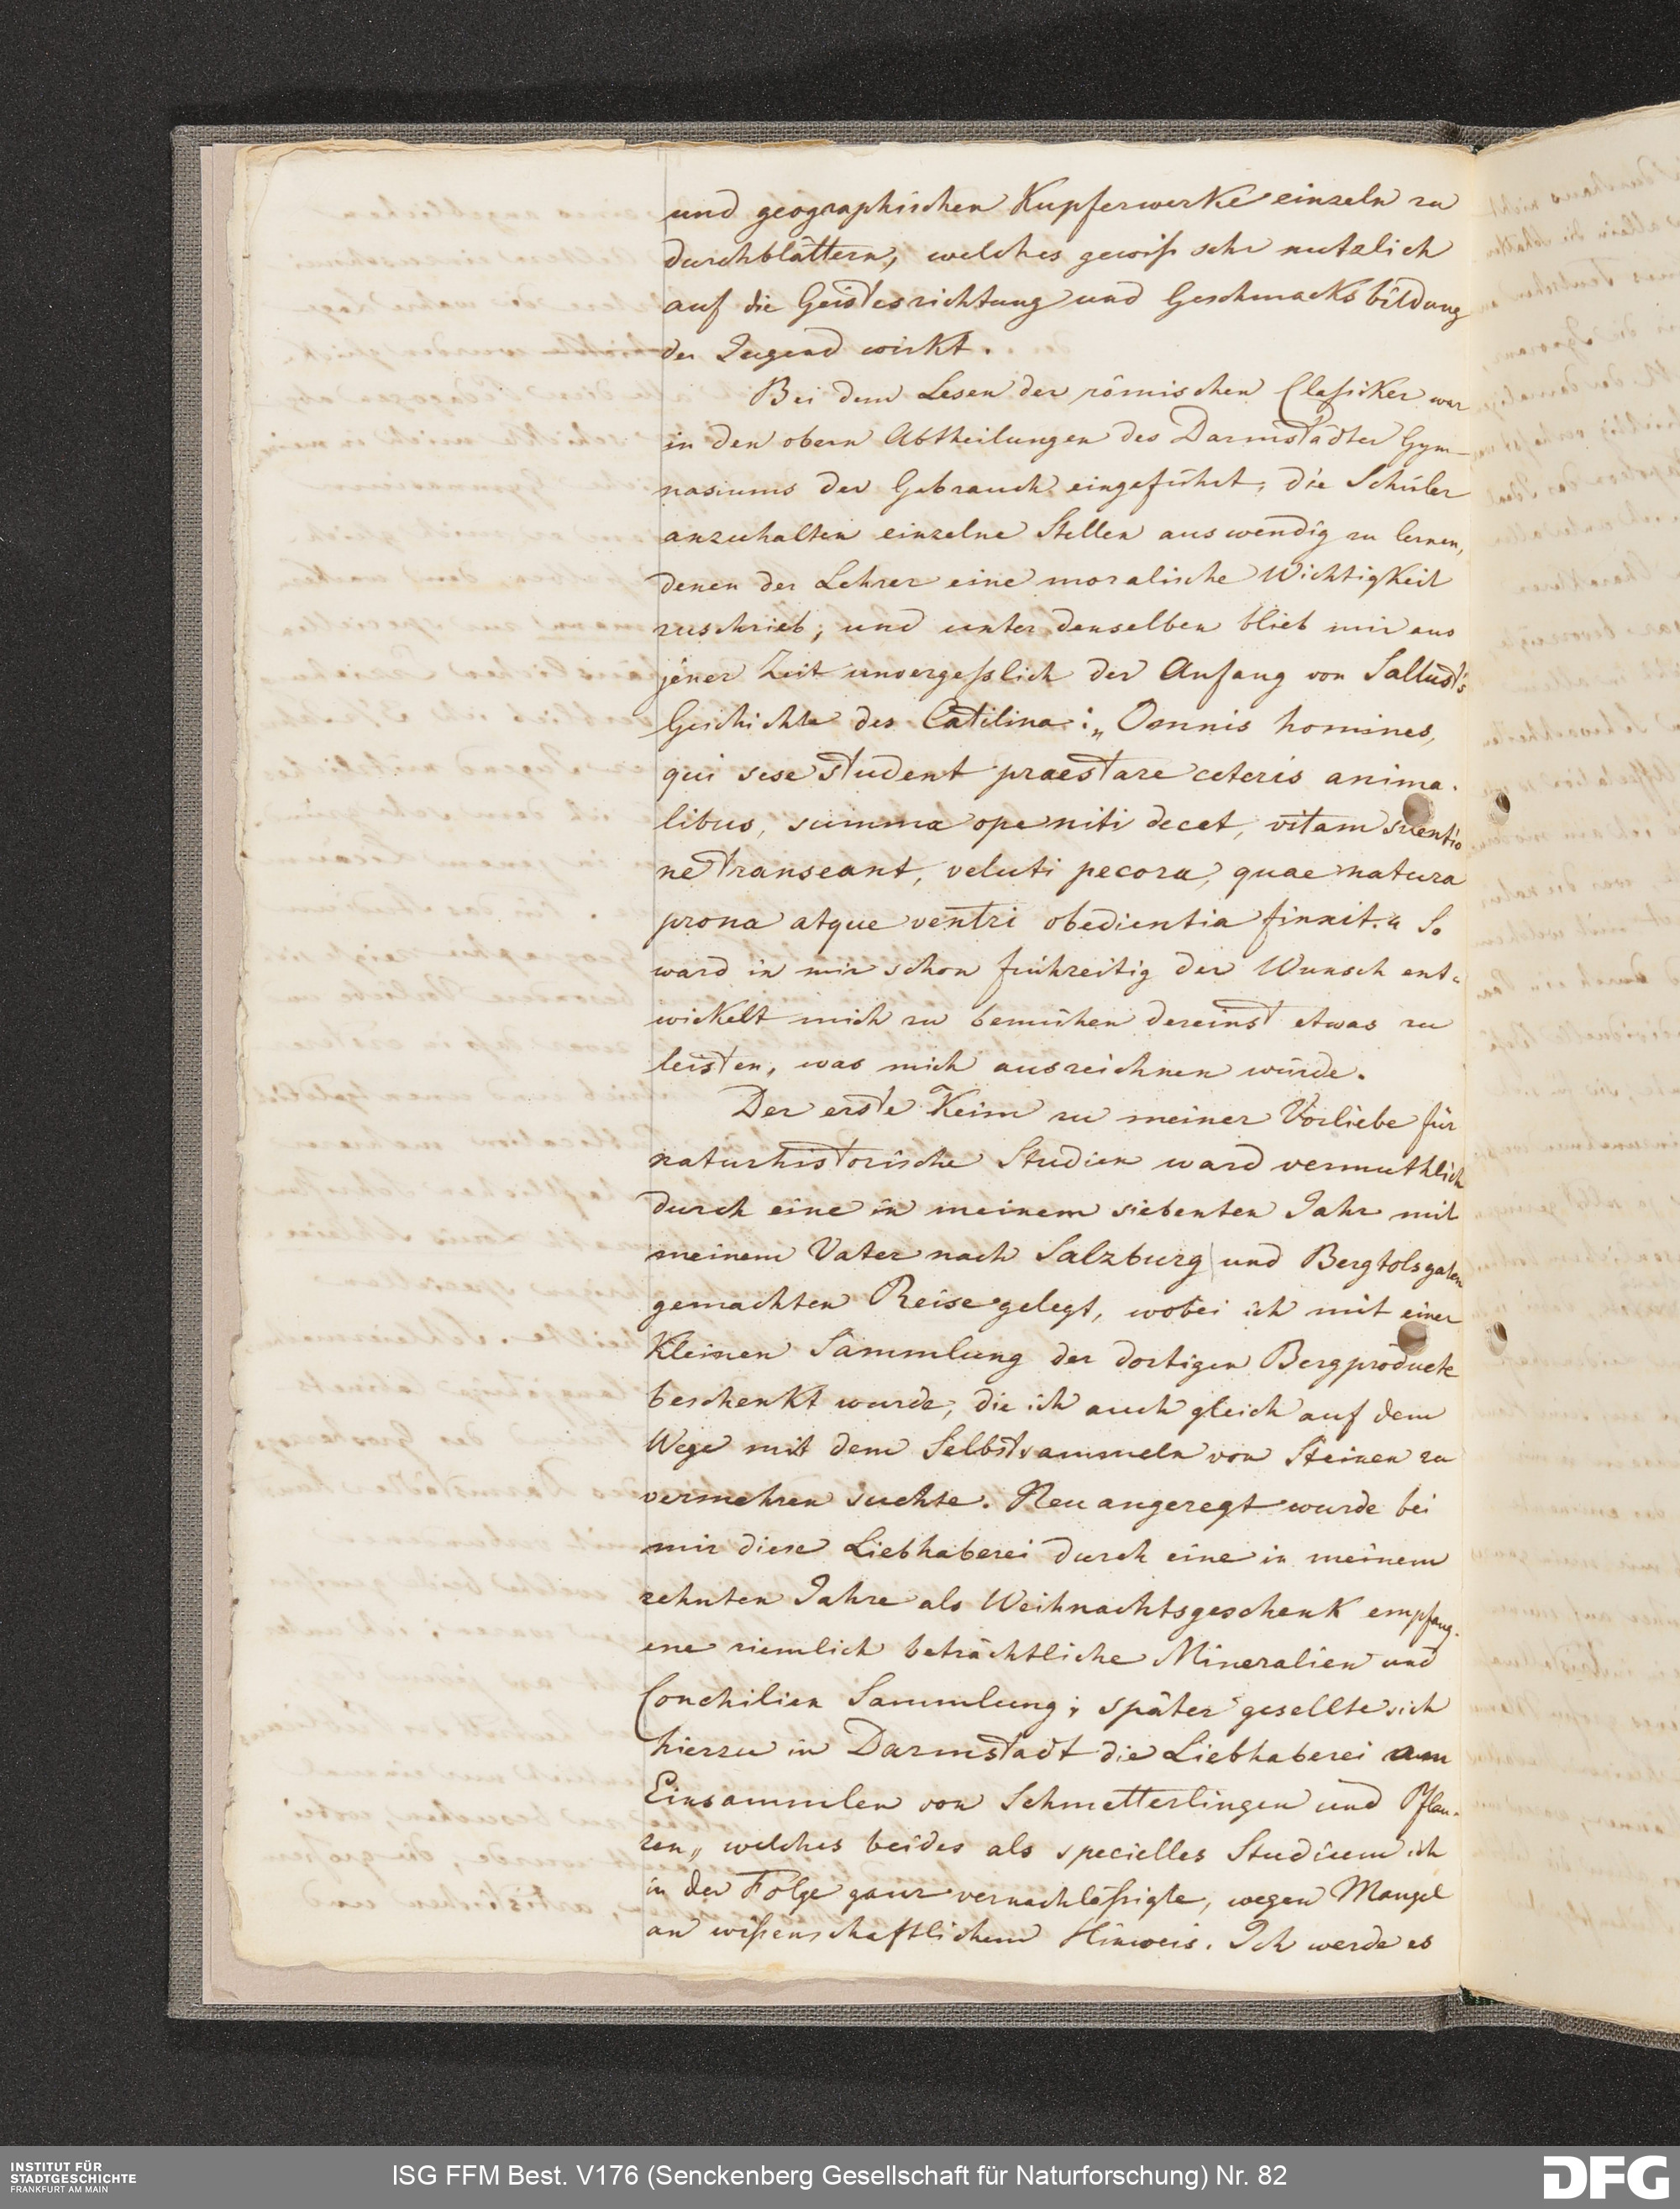 und geographischen Kupferwerke einzeln zu
durchblättern, welches gewiß sehr nutzlich
auf die Geistesrichtung und Geschmacksbildung
der Jugend wirkt.
Bei dem Lesen der römischen Claßiker war
in den obern Abtheilungen des Darmstädter Gym-
nasiums der Gebrauch eingeführt, die Schüler
anzuhalten einzelne Stellen auswendig zu lernen,
denen der Lehrer eine moralische Wichtigkeit
zuschrieb; und unter denselben blieb mir aus
jener Zeit unvergeßlich der Anfang von Sallust's
Geschichte des Catilina: „Omnis homines,
qui sese student praestare ceteris anima-
libus, summa ope niti decet, vitam silentio
ne transeant, veluti pecora, quae natura
prona atque ventri obedientia finxit." So
ward in mir schon frühzeitig der Wunsch ent-
wickelt mich zu bemühen dereinst etwas zu
leisten, was mich auszeichnen würde.
Der erste Keim zu meiner Vorliebe für
naturhistorische Studien ward vermuthlich
durch eine in meinem siebenten Jahr mit
meinem Vater nach Salzburg und Bergtolsgaden
gemachten Reise gelegt, wobei ich mit einer
Kleinen Sammlung der dortigen Bergproducte
beschenkt wurde, die ich auch gleich auf dem
Wege mit dem Selbstsammeln von Steinen zu
vermehren suchte. Neu angeregt wurde bei
mir diese Liebhaberei durch eine in meinem
zehnten Jahre als Weihnachtsgeschenk empfang-
ene ziemlich beträchtliche Mineralien und
Conchilien Sammlung; später gesellte sich
hierzu in Darmstadt die Liebhaberei am
Einsammlen von Schmetterlingen und Pflan-
zen, welches beides als specielles Studium ich
in der Folge ganz vernachläßigte, wegen Mangel
an wißenschaftlichem Hinweis. Ich werde es
INSTITUT FÜR
STADTGESCHICHTE
FRANKFURT AM MAIN
ISG FFM Best. V176 (Senckenberg Gesellschaft für Naturforschung) Nr. 82
DFG